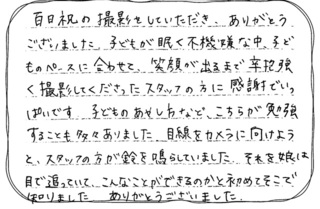 百日祝の撮影をしていただき、ありがとう
ございました。子どもが眠く不機嫌な中、子ど
ものペースに合わせて、笑顔が出るまで辛抱強
く撮影してくださったスタッフの方に感謝でいっ
ぱいです。子どものあやし方など、こちらが勉強
することも多々ありました。目線をカメラに向けよう
と、スタッフの方が鈴を鳴らしていました。それを娘は
目で追っていて、こんなことができるのかと初めてそこで
知りました。ありがとうございました。